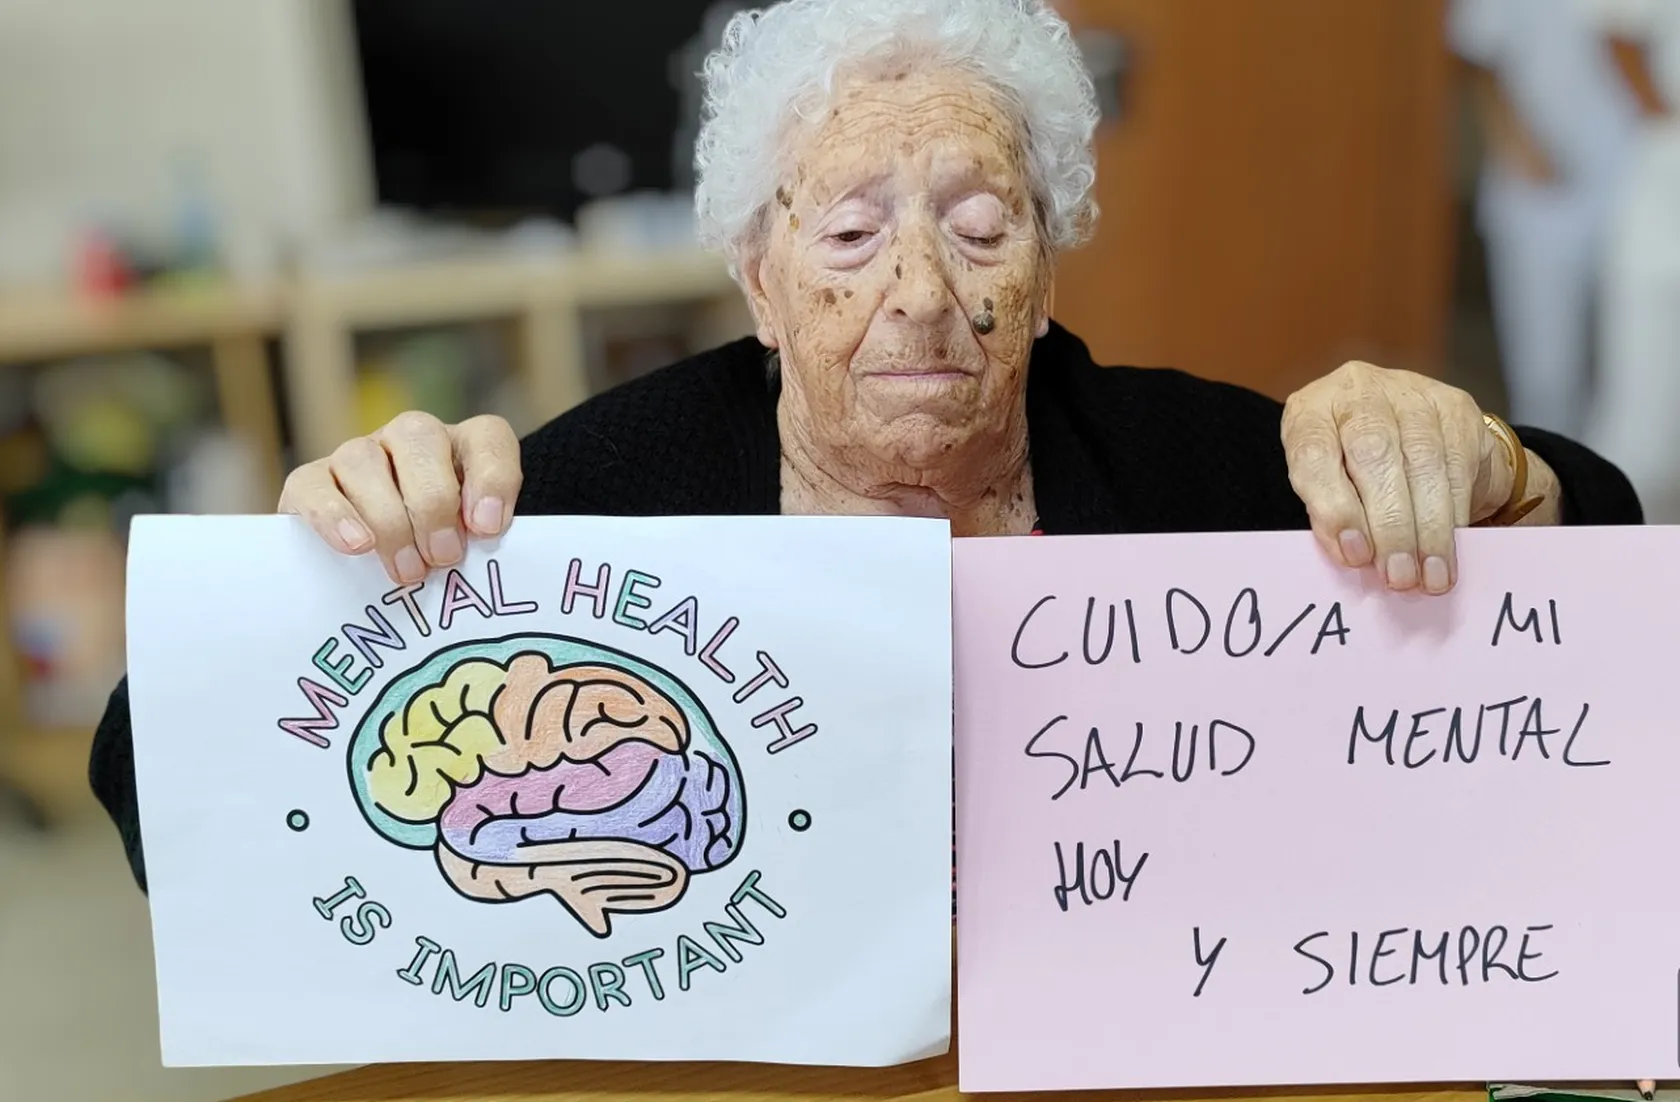 MENTAL HEALTH
IS IMPORTANT
CUIDO/A MI
SALUD MENTAL
HOY
Y SIEMPRE